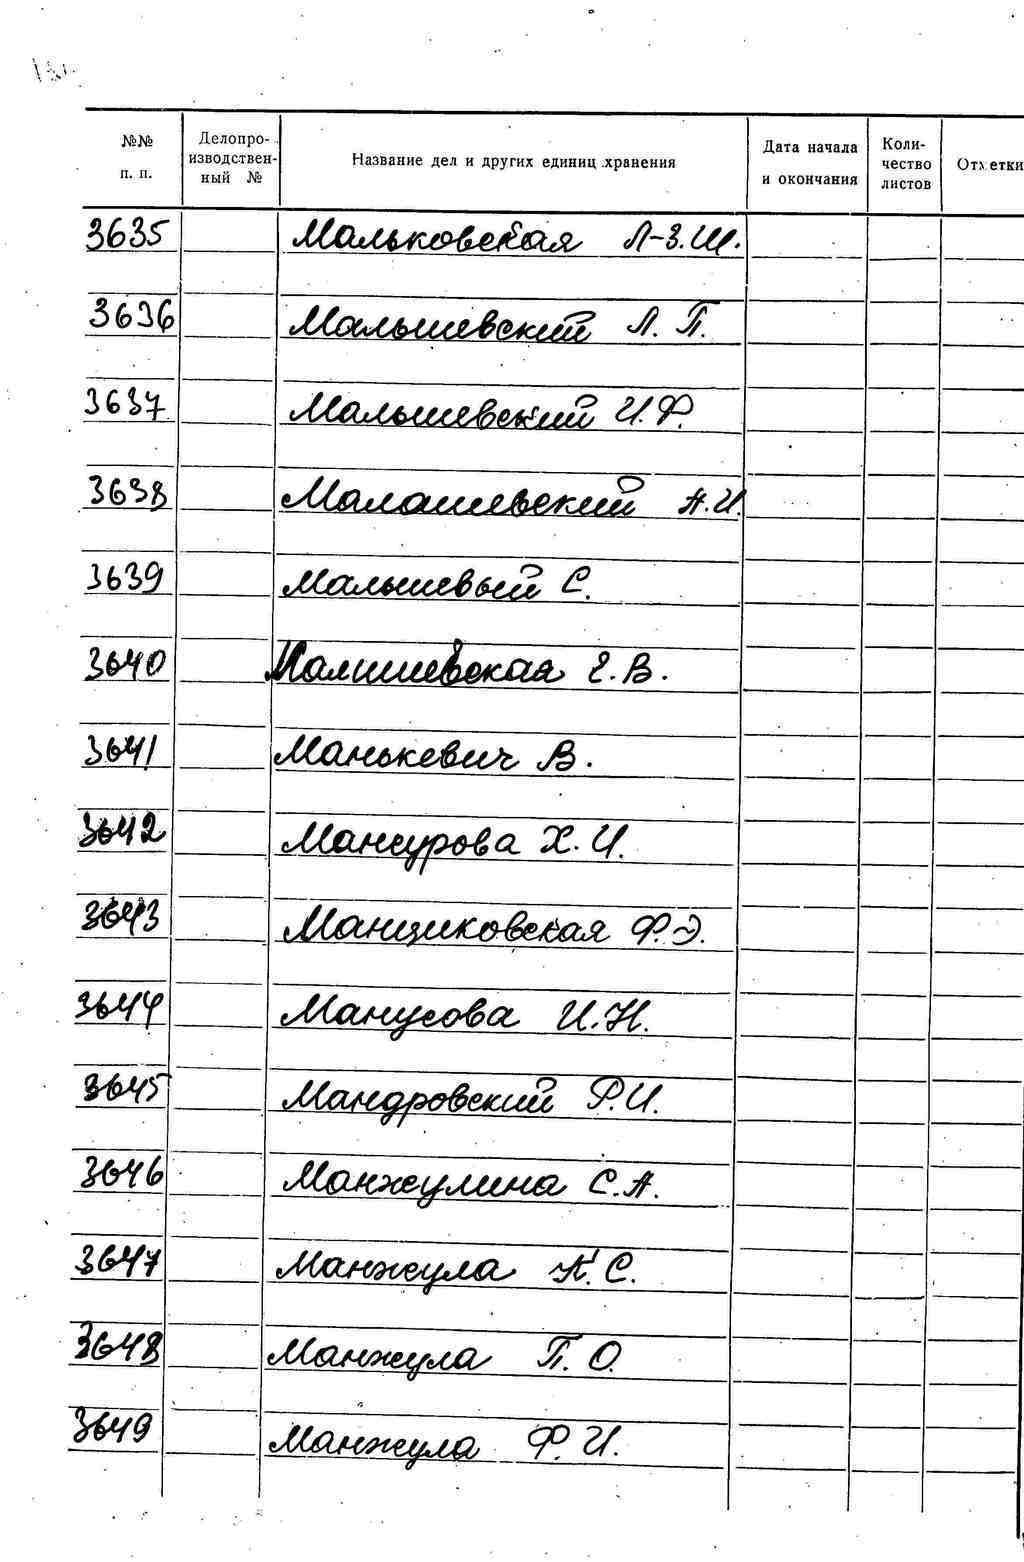 №№ п. п. Делопроизводственный № Название дел и других единиц хранения Дата начала и окончания Количество листов Отметки
3635 Мальковская Л-З.Ш.
3636 Малышевский Л. П.
3637 Малышевский И.Ф.
3638 Малашевский А.И.
3639 Малышевый С.
3640 Малишевская Е.В.
3641 Манькевич В.
3642 Мансурова Х.И.
3643 Манциковская Ф.Э.
3644 Манусова И.Н.
3645 Мандровский Р.И.
3646 Манжулина С.А.
3647 Манжула К.С.
3648 Манжула П.О.
3649 Манжула Ф.И.